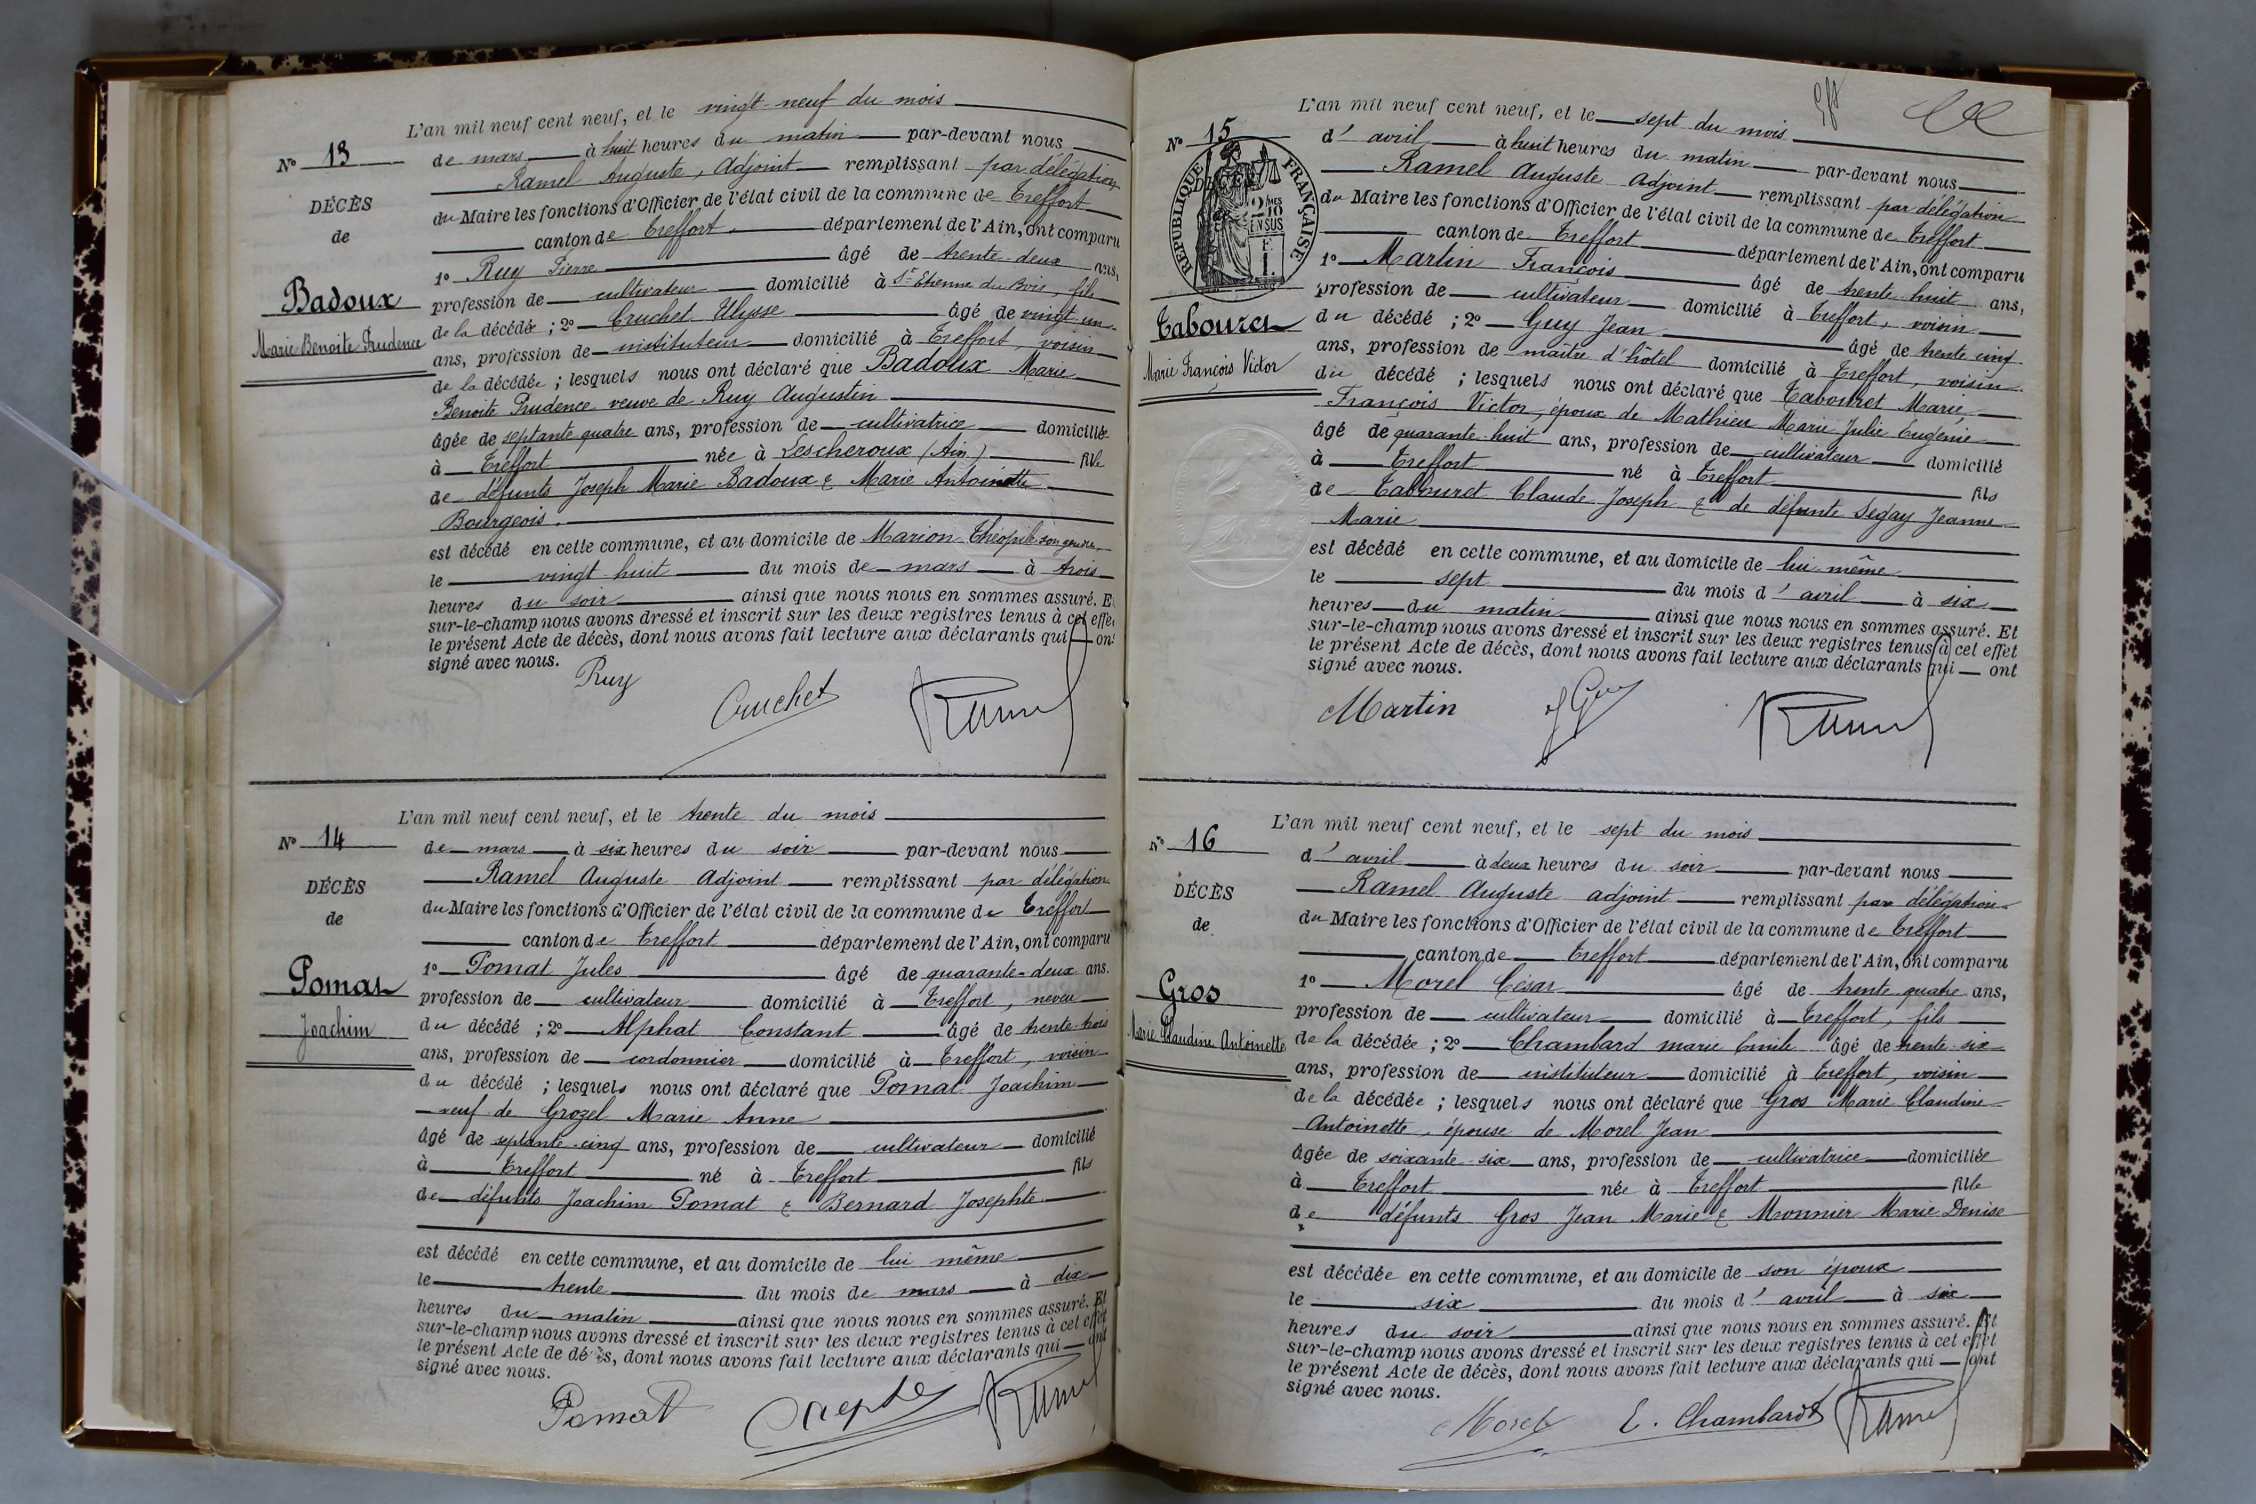 L'an mil neuf cent neuf, et le vingt neuf du mois
N° 13
de mars à huit heures du matin par-devant nous
Ramel Auguste, Adjoint remplissant par délégation
DÉCÈS
du Maire les fonctions d'Officier de l'état civil de la commune de Treffort
de
canton de Treffort département de l'Ain, ont comparu
1° Ruy Pierre âgé de trente-deux ans,
Badoux
profession de cultivateur domicilié à St Etienne du Bois, fils
de la décédée ; 2° Cruchet Ulysse âgé de vingt un
Marie Benoite Prudence
ans, profession de instituteur domicilié à Treffort, voisin
de la décédée ; lesquels nous ont déclaré que Badoux Marie
Benoite Prudence veuve de Ruy Augustin
âgée de septante quatre ans, profession de cultivatrice domiciliée
à Treffort née à Lescheroux (Ain) fille
de défunts Joseph Marie Badoux & Marie Antoinette
Bourgeois.
est décédé en cette commune, et au domicile de Marion Théophile son gendre
le vingt huit du mois de mars à trois
heures du soir ainsi que nous nous en sommes assuré. Et
sur-le-champ nous avons dressé et inscrit sur les deux registres tenus à cet effet
le présent Acte de décès, dont nous avons fait lecture aux déclarants qui ont
signé avec nous.
Ruy
Cruchet
Ramel
L'an mil neuf cent neuf, et le trente du mois
N° 14
de mars à six heures du soir par-devant nous
Ramel Auguste Adjoint remplissant par délégation
DÉCÈS
du Maire les fonctions d'Officier de l'état civil de la commune de Treffort
de
canton de Treffort département de l'Ain, ont comparu
1° Pomat Jules âgé de quarante-deux ans.
Pomat
profession de cultivateur domicilié à Treffort, neveu
Joachim
du décédé ; 2° Alphat Constant âgé de trente-trois
ans, profession de cordonnier domicilié à Treffort, voisin
du décédé ; lesquels nous ont déclaré que Pomat Joachim
veuf de Grozel Marie Anne
âgé de septante cinq ans, profession de cultivateur domicilié
à Treffort né à Treffort fils
de défunts Joachim Pomat & Bernard Josephte
est décédé en cette commune, et au domicile de lui même
le trente du mois de mars à dix
heures du matin ainsi que nous nous en sommes assuré. Et
sur-le-champ nous avons dressé et inscrit sur les deux registres tenus à cet effet
le présent Acte de décès, dont nous avons fait lecture aux déclarants qui ont
signé avec nous.
Pomat
Ramel
L'an mil neuf cent neuf, et le sept du mois
N° 15
d'avril à huit heures du matin par-devant nous
Ramel Auguste Adjoint remplissant par délégation
RÉPUBLIQUE FRANÇAISE
2 10MES
EN SUS
DÉCÈS
du Maire les fonctions d'Officier de l'état civil de la commune de Treffort
canton de Treffort département de l'Ain, ont comparu
1° Martin François âgé de trente huit ans,
profession de cultivateur domicilié à Treffort, voisin
Tabouret
du décédé ; 2° Guy Jean âgé de trente cinq
Marie François Victor
ans, profession de maître d'hôtel domicilié à Treffort, voisin
du décédé ; lesquels nous ont déclaré que Tabouret Marie
François Victor, époux de Mathieu Marie Julie Eugénie
âgé de quarante-huit ans, profession de cultivateur domicilié
à Treffort né à Treffort fils
de Tabouret Claude Joseph & de défunte Segay Jeanne
Marie
est décédé en cette commune, et au domicile de lui même
le sept du mois d'avril à six
heures du matin ainsi que nous nous en sommes assuré. Et
sur-le-champ nous avons dressé et inscrit sur les deux registres tenus à cet effet
le présent Acte de décès, dont nous avons fait lecture aux déclarants qui ont
signé avec nous.
Martin
J Guy
Ramel
L'an mil neuf cent neuf, et le sept du mois
N° 16
d'avril à deux heures du soir par-devant nous
Ramel Auguste adjoint remplissant par délégation
DÉCÈS
du Maire les fonctions d'Officier de l'état civil de la commune de Treffort
de
canton de Treffort département de l'Ain, ont comparu
1° Morel César âgé de trente quatre ans,
Gros
profession de cultivateur domicilié à Treffort, fils
Marie Claudine Antoinette
de la décédée ; 2° Chambard marie Emile âgé de trente-six
ans, profession de instituteur domicilié à Treffort, voisin
de la décédée ; lesquels nous ont déclaré que Gros Marie Claudine
Antoinette, épouse de Morel Jean
âgée de soixante-six ans, profession de cultivatrice domiciliée
à Treffort née à Treffort fille
de défunts Gros Jean Marie & Monnier Marie Denise
est décédée en cette commune, et au domicile de son époux
le six du mois d'avril à six
heures du soir ainsi que nous nous en sommes assuré. Et
sur-le-champ nous avons dressé et inscrit sur les deux registres tenus à cet effet
le présent Acte de décès, dont nous avons fait lecture aux déclarants qui ont
signé avec nous.
Morel
E. Chambard
Ramel